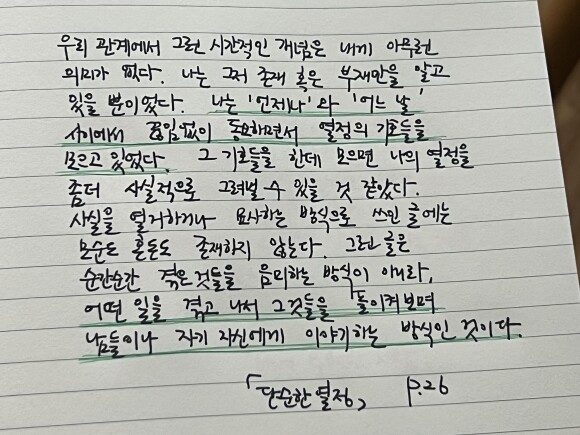 우리 관계에서 그런 시간적인 개념은 내게 아무런
의미가 없다. 나는 그저 존재 혹은 부재만을 알고
있을 뿐이었다. 나는 '언제나'와 '어느 날'
사이에서 끊임없이 동요하면서 열정의 기호들을
모으고 있었다. 그 기호들을 한데 모으면 나의 열정을
좀더 사실적으로 그려낼 수 있을 것 같았다.
사실을 열거하거나 묘사하는 방식으로 쓰인 글에는
모순도 혼돈도 존재하지 않는다. 그런 글은
순간순간 겪은 것들을 음미하는 방식이 아니라,
어떤 일을 겪고 나서 그것들을 돌이켜보며
남들이나 자기 자신에게 이야기하는 방식인 것이다.
「단순한 열정」 p.26